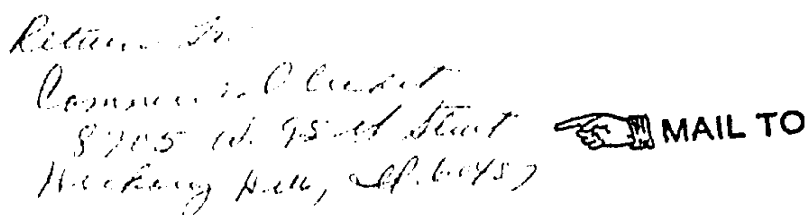 Return To
Commercial Credit
8705 W. 95th Street MAIL TO
Hickory Hills, Il. 60457